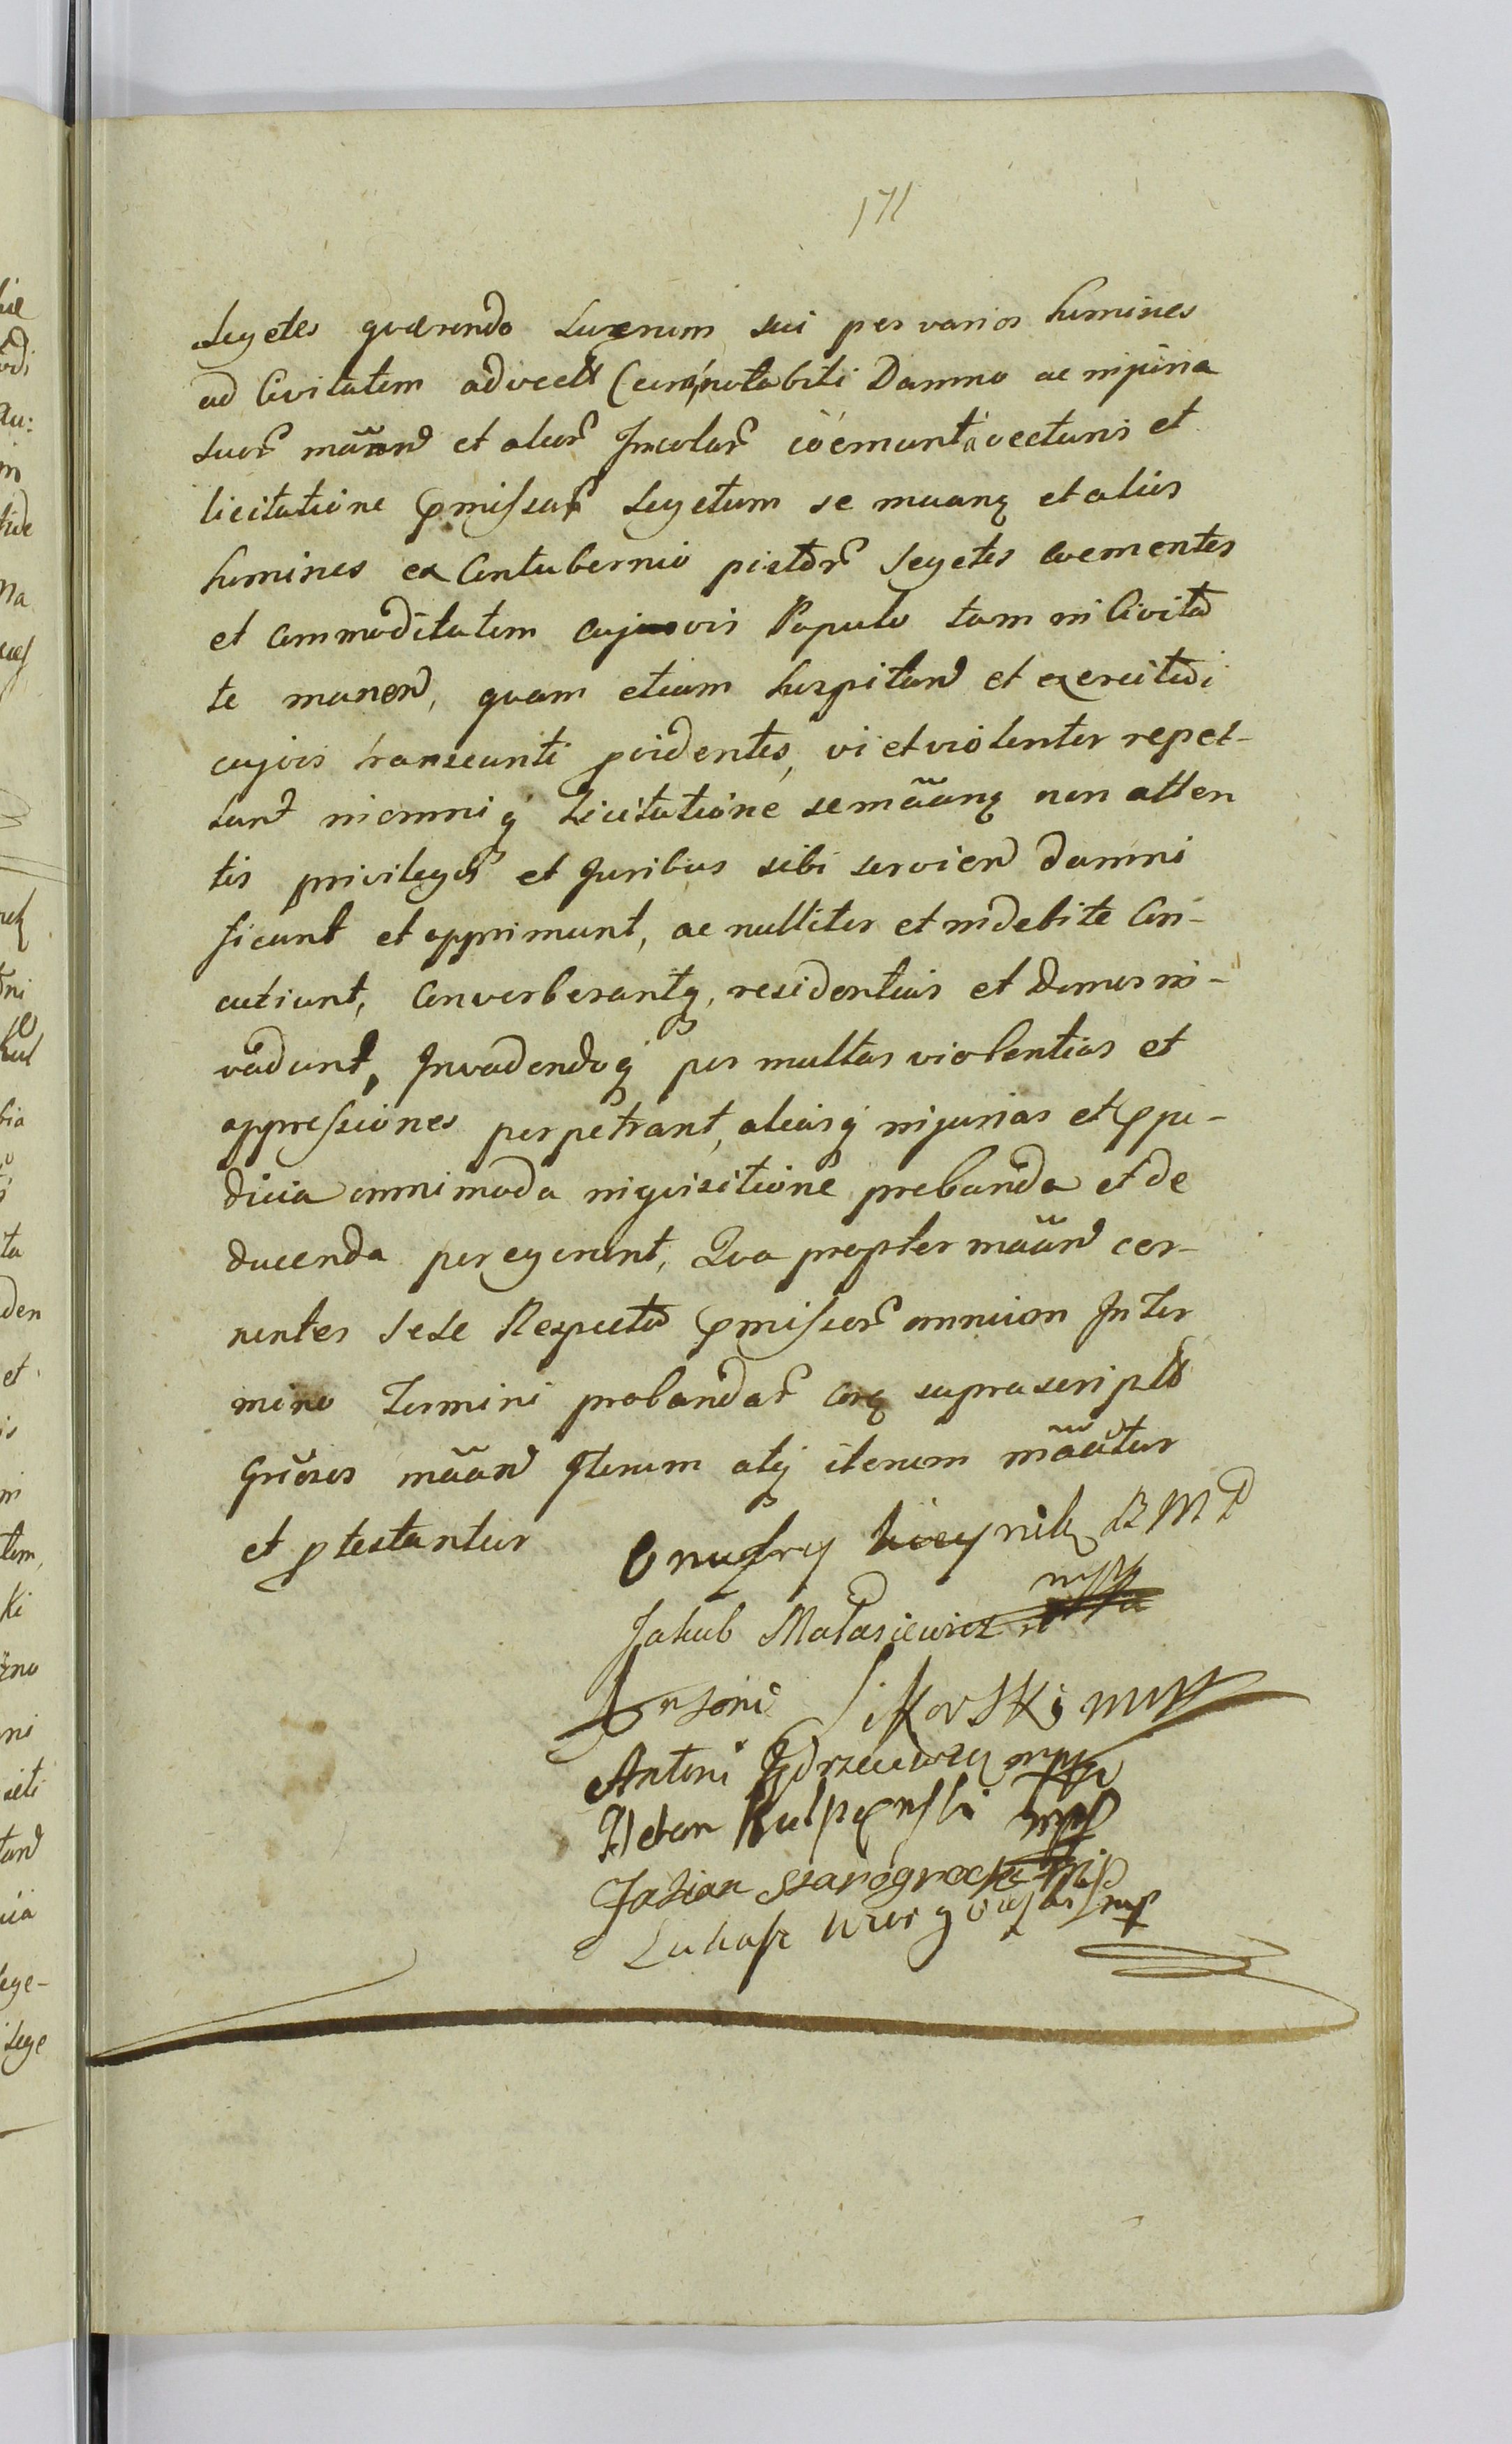 171
Segetes quærendo Lucrum sui per varios homines
ad Civitatem advect (cum notabili Damno ac injuria
suor maan et alior Incolar coemunt a vecturis et
licitatione pmissar Segetum se maanq et alios
homines ex Contubernio pistor Segetes coementes
et commoditatem cujusvis Populo tam in Civita
te manen, quam etiam hospitan et exercitui
cujvis transeunti pvidentes, vi et violenter repel-
lunt in omniq Licitatione se maanq non atten
tis privilegys et Juribus sibi servien damni
ficant et opprimunt, ac nulliter et indebite Con-
cutiunt, Converberantq, residentias et Domos in-
vadunt, Invadendoq per multas violentias et
oppressiones perpetrant, aliasq injurias et ppu-
dicia omnimoda inquisitione probanda et de
ducenda peregerunt, Qua propter maan cer-
nentes Sese Respectu pmissor omnium In ter
mino Termini probandar Corq suprascript
Gnosos maan Iterum atq iterum maantur
et ptestantur
Onufry BMP
Jakub Matasiewicz mpp
Antoni Sikorski mpp
Antoni mpp
mpp
mpp
Lukasz mpp